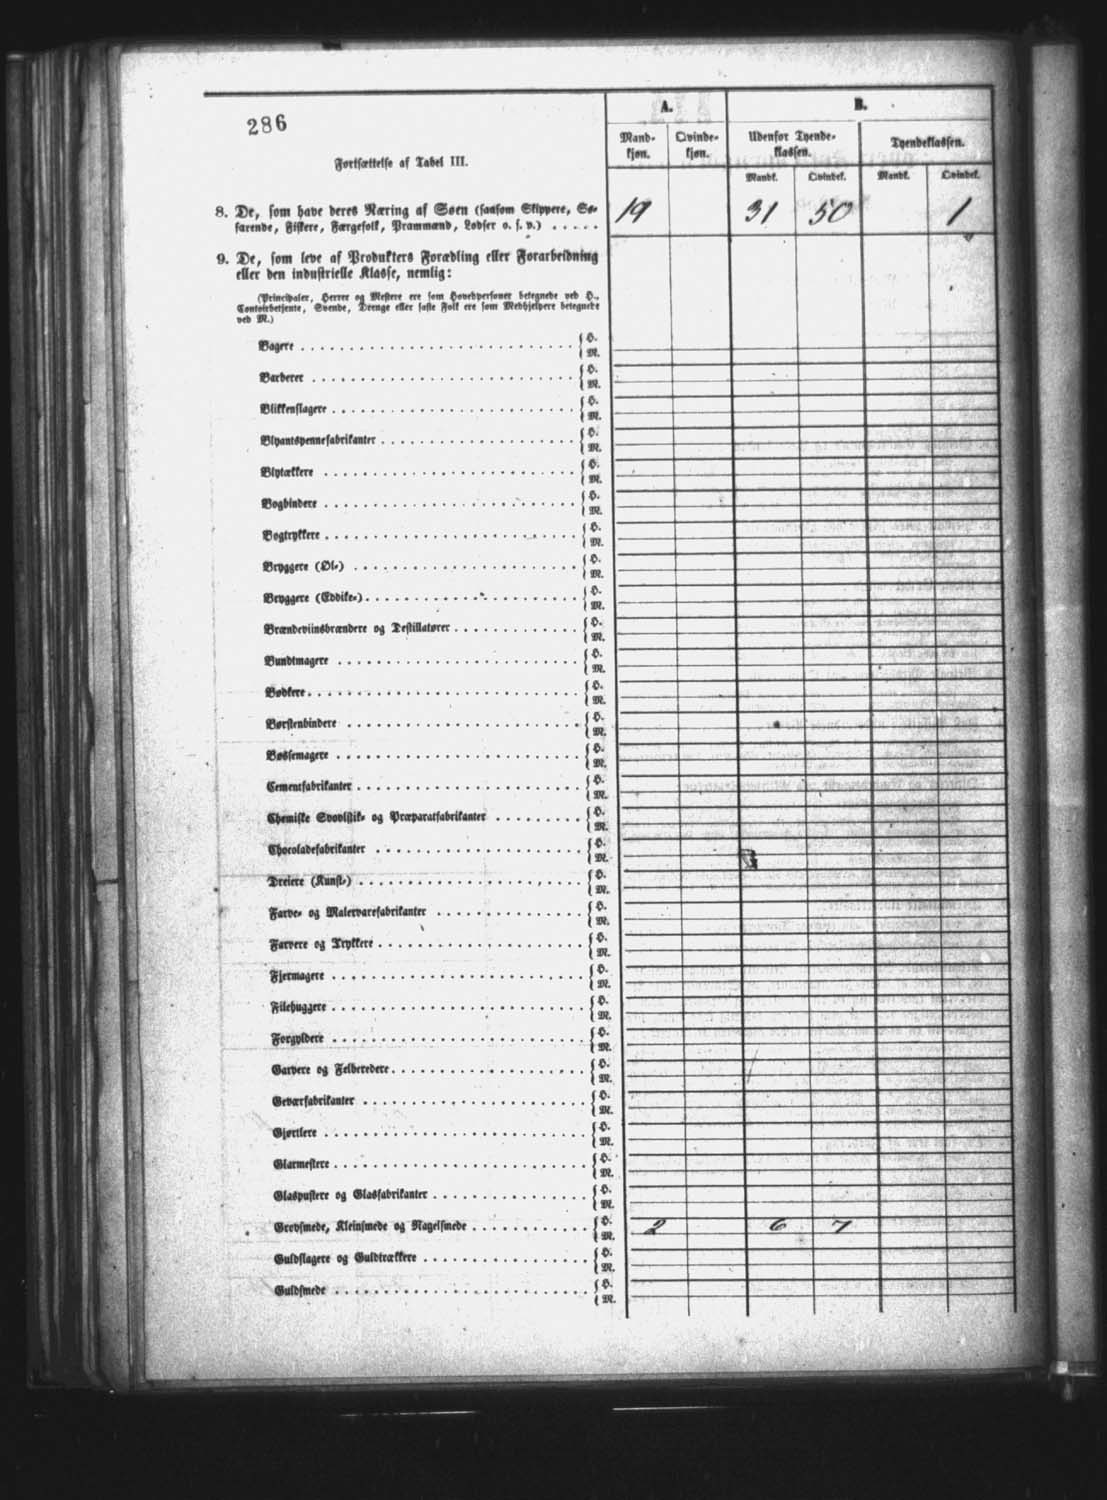 286
Fortsættelse af Tabel III.
A. B.
Mand- Qvinde- Udenfor Tyende- Tyendeklassen.
kjøn. kjøn. klassen.
Mandk. Qvindek. Mandk. Qvindek.
8. De, som have deres Næring af Søen (saasom Skippere, Sø-
farende, Fiskere, Færgefolk, Prammænd, Lodser o. s. v.) ..... 19 31 50 1
9. De, som leve af Produkters Forædling eller Forarbeidning
eller den industrielle Klasse, nemlig:
(Principaler, Herrer og Mestere ere som Hovedpersoner betegnede ved H.,
Contoirbetjente, Svende, Drenge eller faste Folk ere som Medhjelpere betegnede
ved M.)
Bagere { H.
{ M.
Barberer { H.
{ M.
Blikkenslagere { H.
{ M.
Blyantspennefabrikanter { H.
{ M.
Blytækkere { H.
{ M.
Bogbindere { H.
{ M.
Bogtrykkere { H.
{ M.
Bryggere (Øl-) { H.
{ M.
Bryggere (Eddike-) { H.
{ M.
Brændeviinsbrændere og Destillatører { H.
{ M.
Bundtmagere { H.
{ M.
Bødkere { H.
{ M.
Børstenbindere { H.
{ M.
Bøssemagere { H.
{ M.
Cementfabrikanter { H.
{ M.
Chemiske Svovlstik- og Præparatfabrikanter { H.
{ M.
Chocoladefabrikanter { H.
{ M.
Dreiere (Kunst-) { H.
{ M.
Farve- og Malervarefabrikanter { H.
{ M.
Farvere og Trykkere { H.
{ M.
Fjermagere { H.
{ M.
Filehuggere { H.
{ M.
Forgyldere { H.
{ M.
Garvere og Felberedere { H.
{ M.
Geværfabrikanter { H.
{ M.
Gjørtlere { H.
{ M.
Glarmestere { H.
{ M.
Glaspustere og Glasfabrikanter { H.
{ M.
Grovsmede, Kleinsmede og Nagelsmede { H. 2 6 7
{ M.
Guldslagere og Guldtrækkere { H.
{ M.
Guldsmede { H.
{ M.